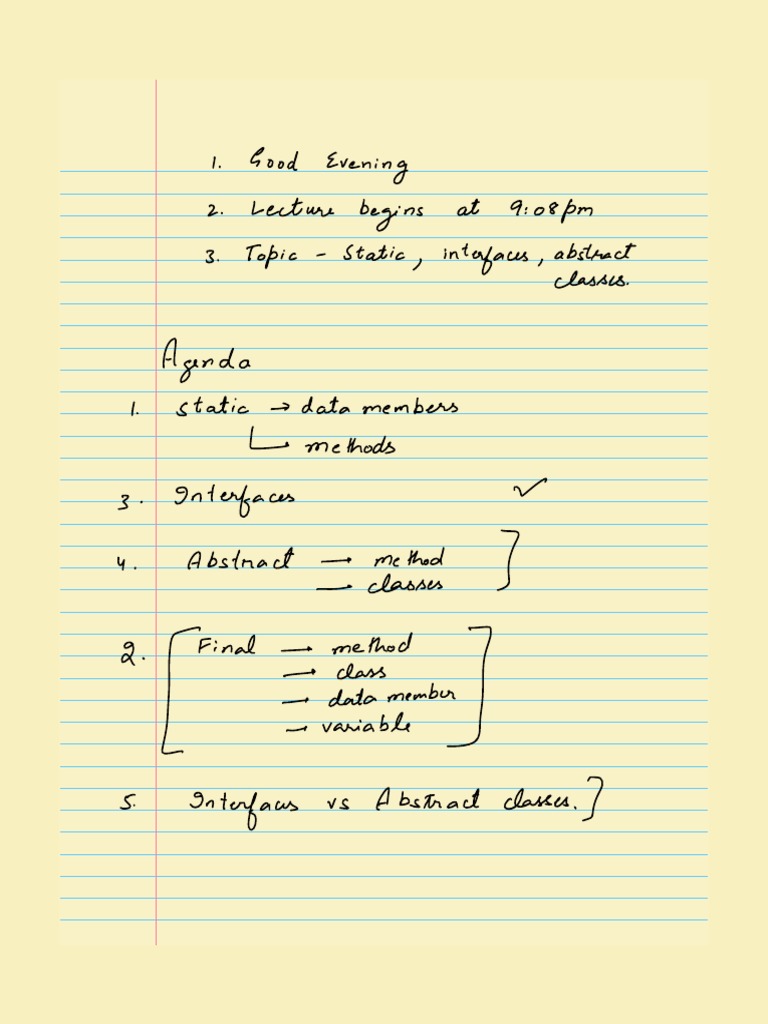 1. Good Evening
2. Lecture begins at 9:08pm
3. Topic - Static, interfaces, abstract
classes.
Agenda
1. static → data members
methods
3. Interfaces ✓
4. Abstract — method
— classes
2. [Final → method
→ class
→ data member
→ variable]
5. Interfaces vs Abstract classes.]